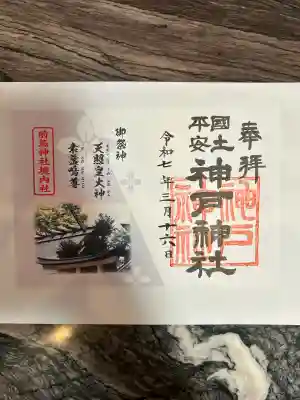 奉拝
國土
平安
神戸神社
神戸
神社
令和七年三月十六日
御祭神
天照皇大神
素盞嗚尊
前鳥神社境内社